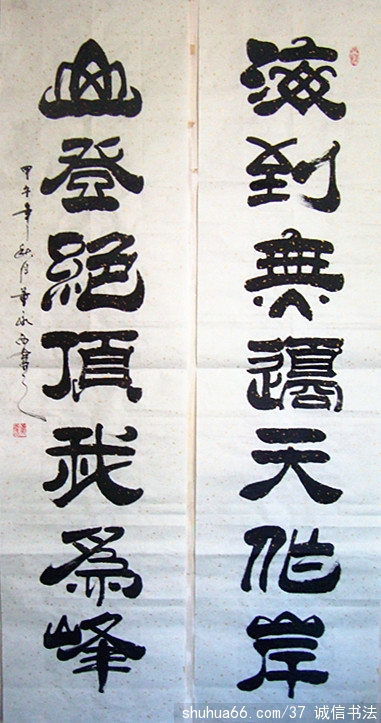 海到無邊天作岸
山登絕頂我為峰
甲午年秋月董永西書
shuhua66.com/37 诚信书法